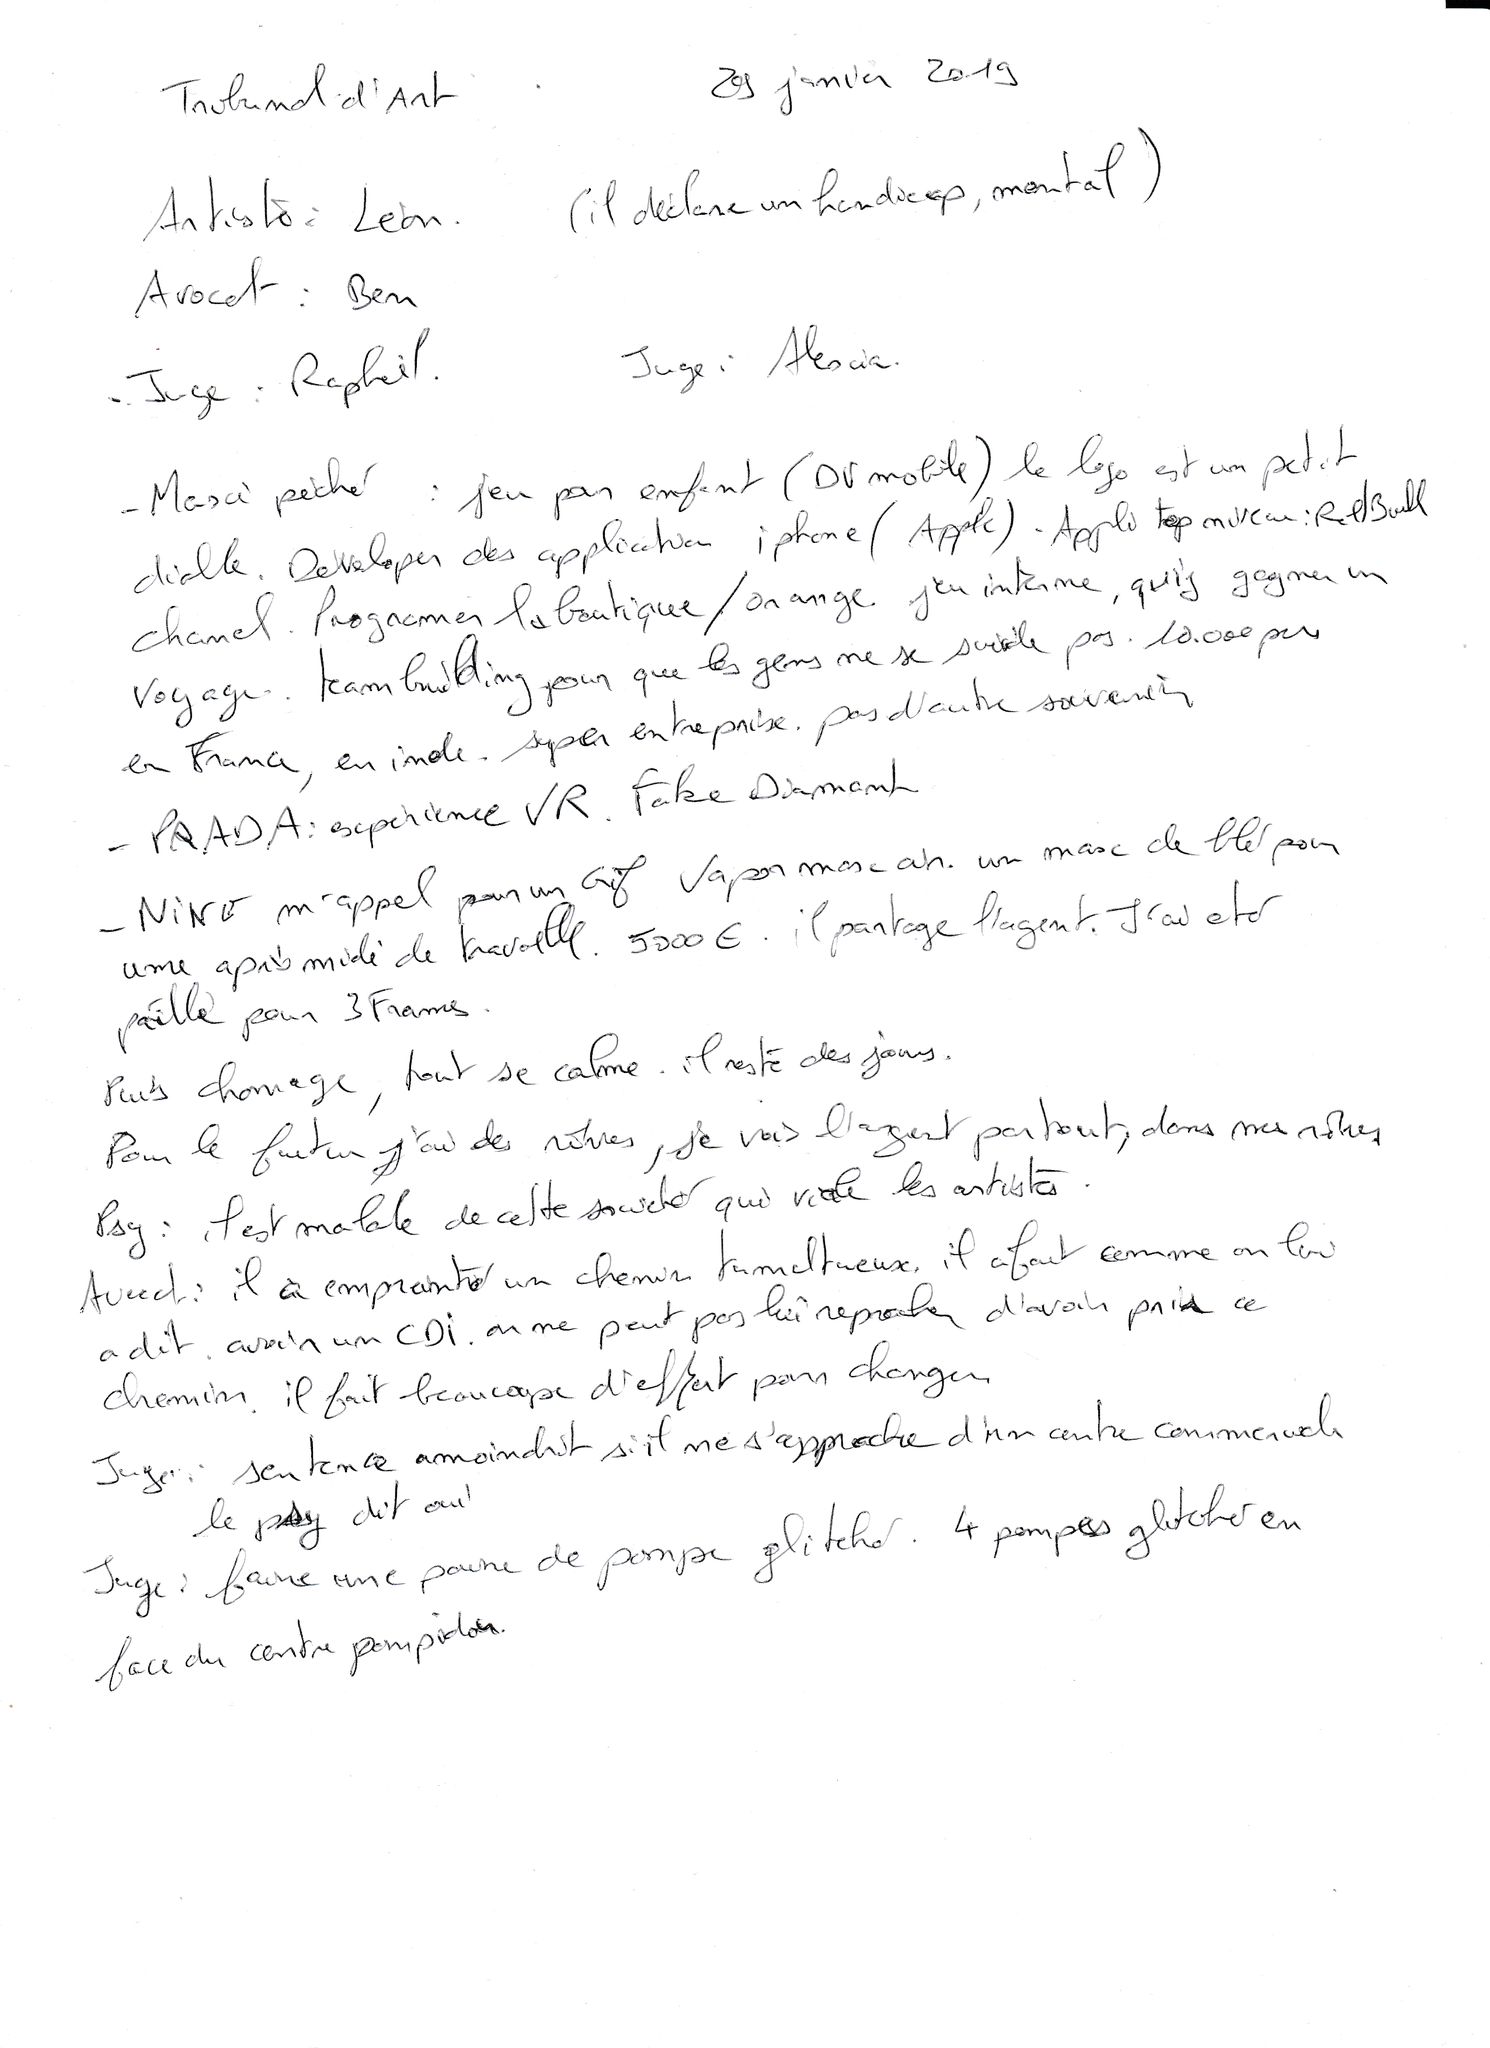 Tribunal d'Art 29 janvier 2019
Artiste : Léon. (il déclare un handicap, mental)
Avocat : Ben
- Juge : Raphaël. Juge : Alessia.
- péché : jeu pour enfant (DV mobile) le logo est un petit
diable. Développer des application iphone (Apple). Appli top niveau : RedBull
chanel. Programer la boutique / orange jeu interne, qui gagner un
voyage. team building pour que les gens ne se suicide pas. 10.000 pers
en France, en inde. super entreprise. pas d'autre souvenir
- PRADA : expérience VR. Fake Diamant
- NiKE m'appel pour un Gif Vapor max air. un max de blé pour
une après midi de travaille. 5000 €. il partage l'agent. J'ai eté
paillé pour 3 Frames.
Puis chomage, tout se calme. il reste des jours.
Pour le futur j'ai des rêves, je vois l'argent partout, dans mes rêves
Psy : il est malade de cette société qui viole les artistes.
Avocat : il a emprunté un chemin tumultueux. il a fait comme on lui
a dit. avoir un CDI. on ne peut pas lui reprocher d'avoir pris ce
chemin. il fait beaucoupe d'effort pour changer
Juge : sentence amoindrit si il ne s'approche d'un centre commerciale
le psy dit oui
Juge : faire une paire de pompe glitché. 4 pompes glitché en
face du centre pompidou.